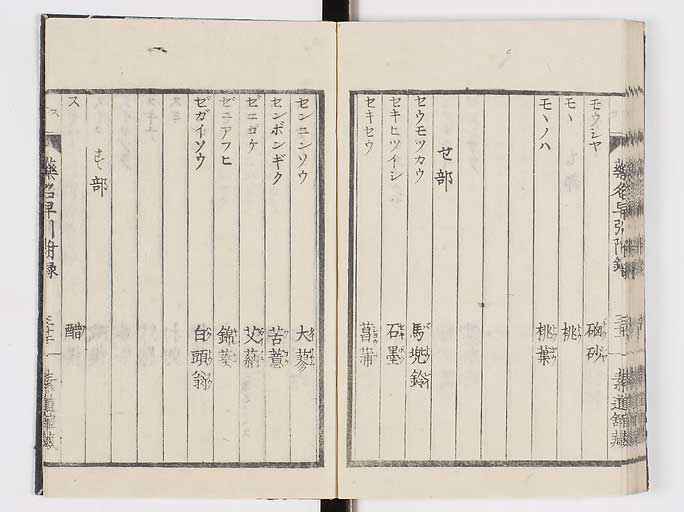 モウシヤ 硇砂
モヽ 桃
モヽノハ 桃葉
せ部
セウモツカウ 馬兜鈴
セキヒツイシ 石墨
セキセウ 菖蒲
薬名早引附録
センニンソウ 大蓼
センボンギク 苦薏
ゼニゴケ
ゼニアフヒ 錦葵
ゼガイソウ 白頭翁
す部
ス 醋
薬名早引附録